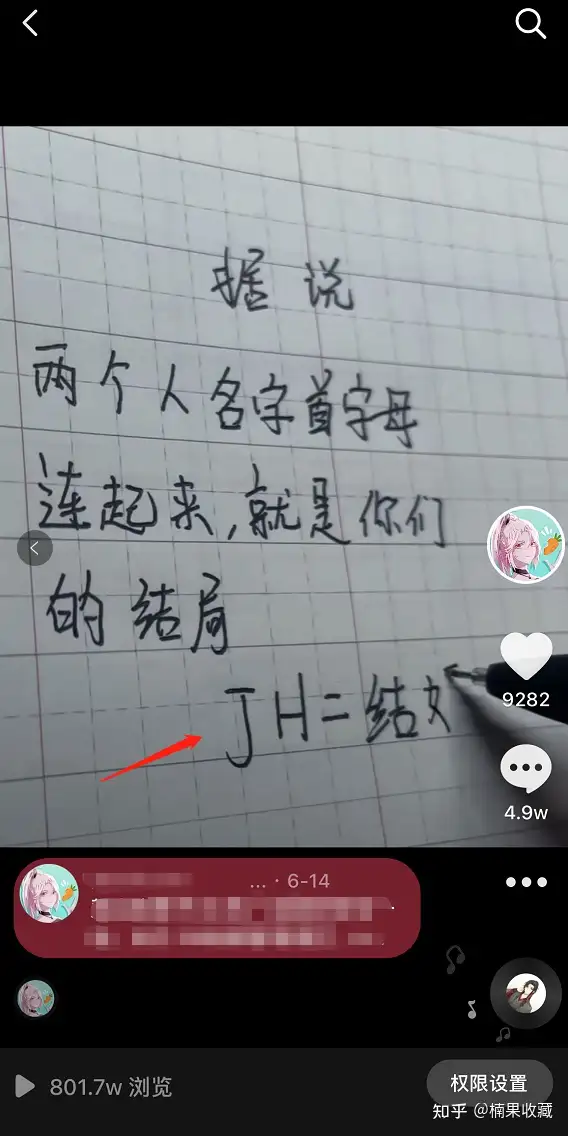 据说
两个人名字首字母
连起来,就是你们
的结局
JH=结
9282
4.9w
... · 6-14
801.7w 浏览
权限设置
知乎 @楠果收藏